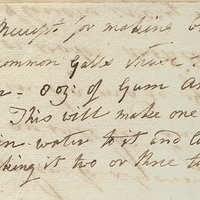 Receipt for making
common Galls three
8 oz: of Gum Ar
This will make one
in water to it and
king it two or three t